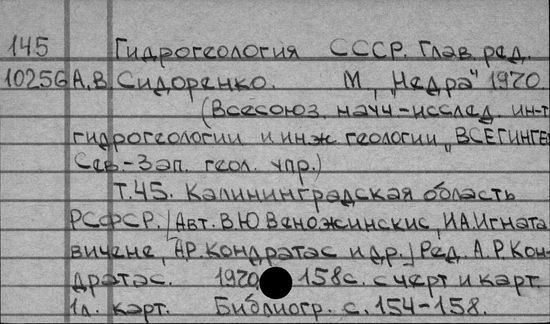 145 Гидрогеология СССР. Глав. ред.
10256 А.В. Сидоренко. М., "Недра" 1970.
(Всесоюз. научн-исслед. ин-т
гидрогеологии и инж. геологии „ВСЕГИНГЕО
Сев.-Зап. геол. упр.)
Т.45. Калининградская область
РСФСР. /Авт. В.Ю Веножинскис, И.А.Игната
вичене, А.Р.Кондратас и др./ Ред. А.Р.Кон-
дратас. 1970 158с. с черт и карт.
1л. карт. Библиогр. с. 154-158.